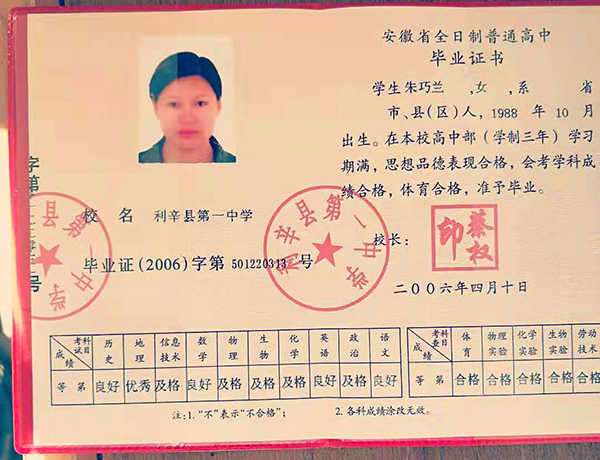 安徽省全日制普通高中
毕业证书
学生朱巧兰 ,女 ,系 省
市、县(区)人, 1988 年 10 月
出生。在本校高中部(学制三年)学习
期满,思想品德表现合格,会考学科成
绩合格,体育合格,准予毕业。
校 名 利辛县第一中学
毕业证(2006)字第 501220313 号
利辛县第一中学
校长:
二〇〇六年四月十日
考试科目 历史 地理 信息技术 数学 物理 生物 化学 英语 政治 语文
成绩
等 第 良好 优秀 及格 良好 及格 及格 及格 良好 及格 良好
考查科目 体育 物理实验 化学实验 生物实验 劳动技术
成绩
等 第 合格 合格 合格 合格 合格
注:1.“不”表示“不合格”; 2.各科成绩涂改无效。